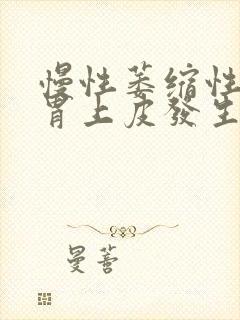 慢性萎縮性
胃上皮發生
曼蒼